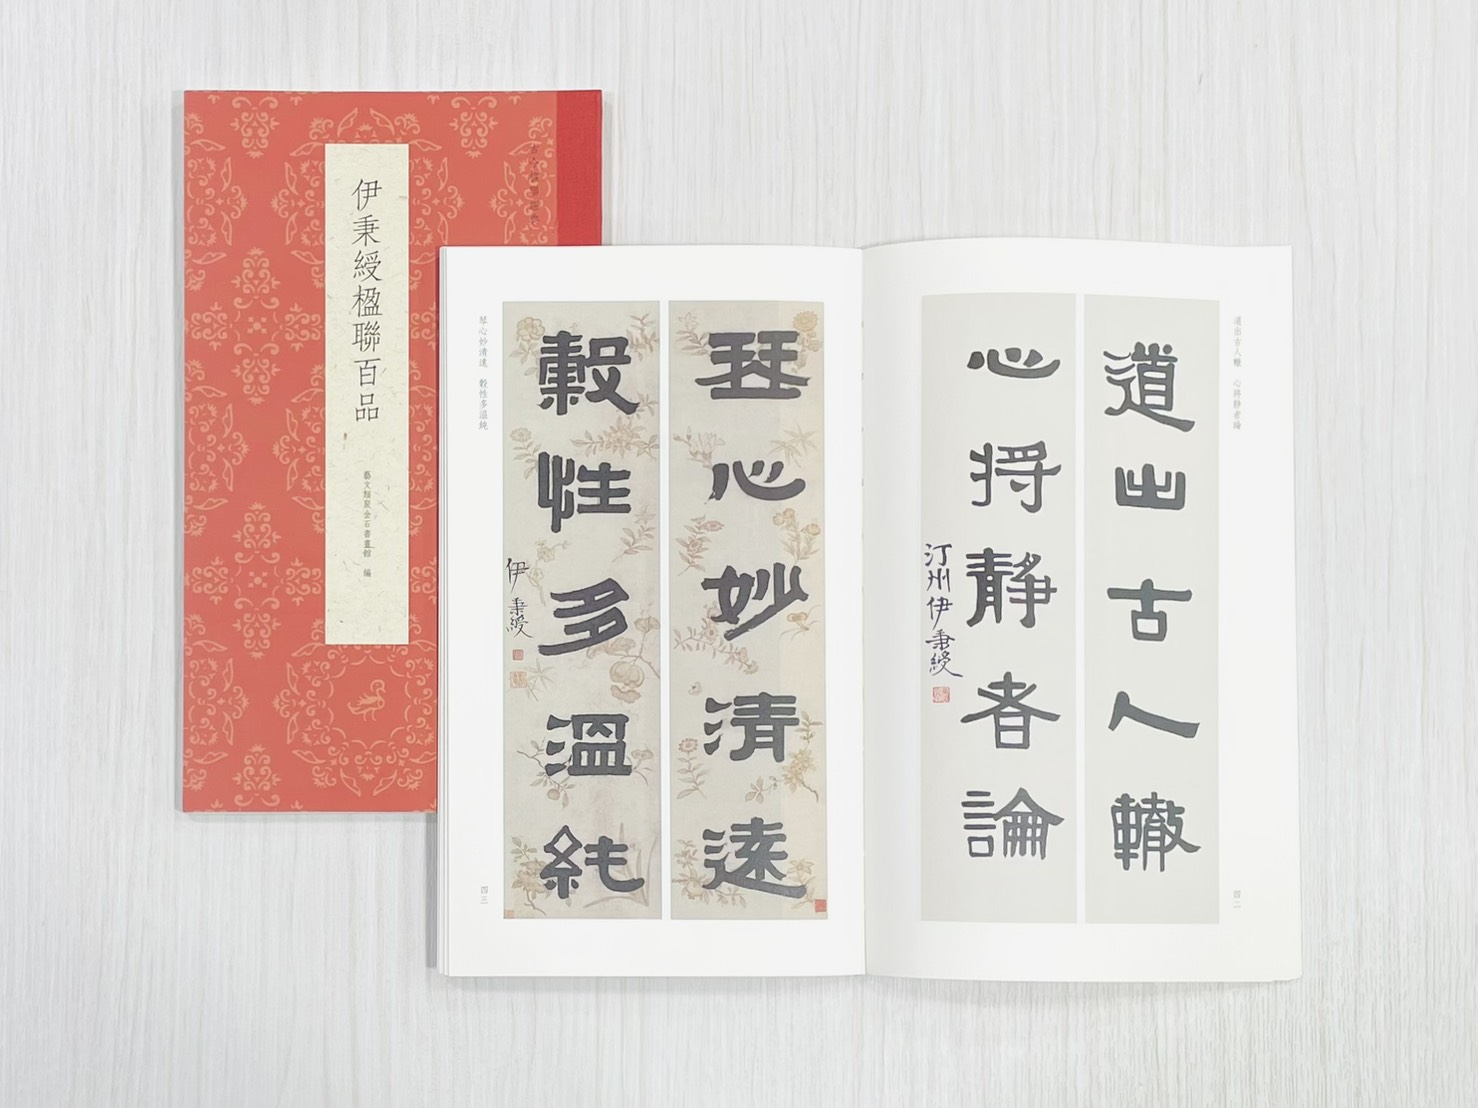 伊秉綬楹聯百品
藝文類聚金石書畫館 編
道出古人轍 心將靜者論
四二
道出古人轍
心將靜者論
汀州伊秉綬
琴心妙清遠
穀性多溫純
伊秉綬
琴心妙清遠 穀性多溫純
四三